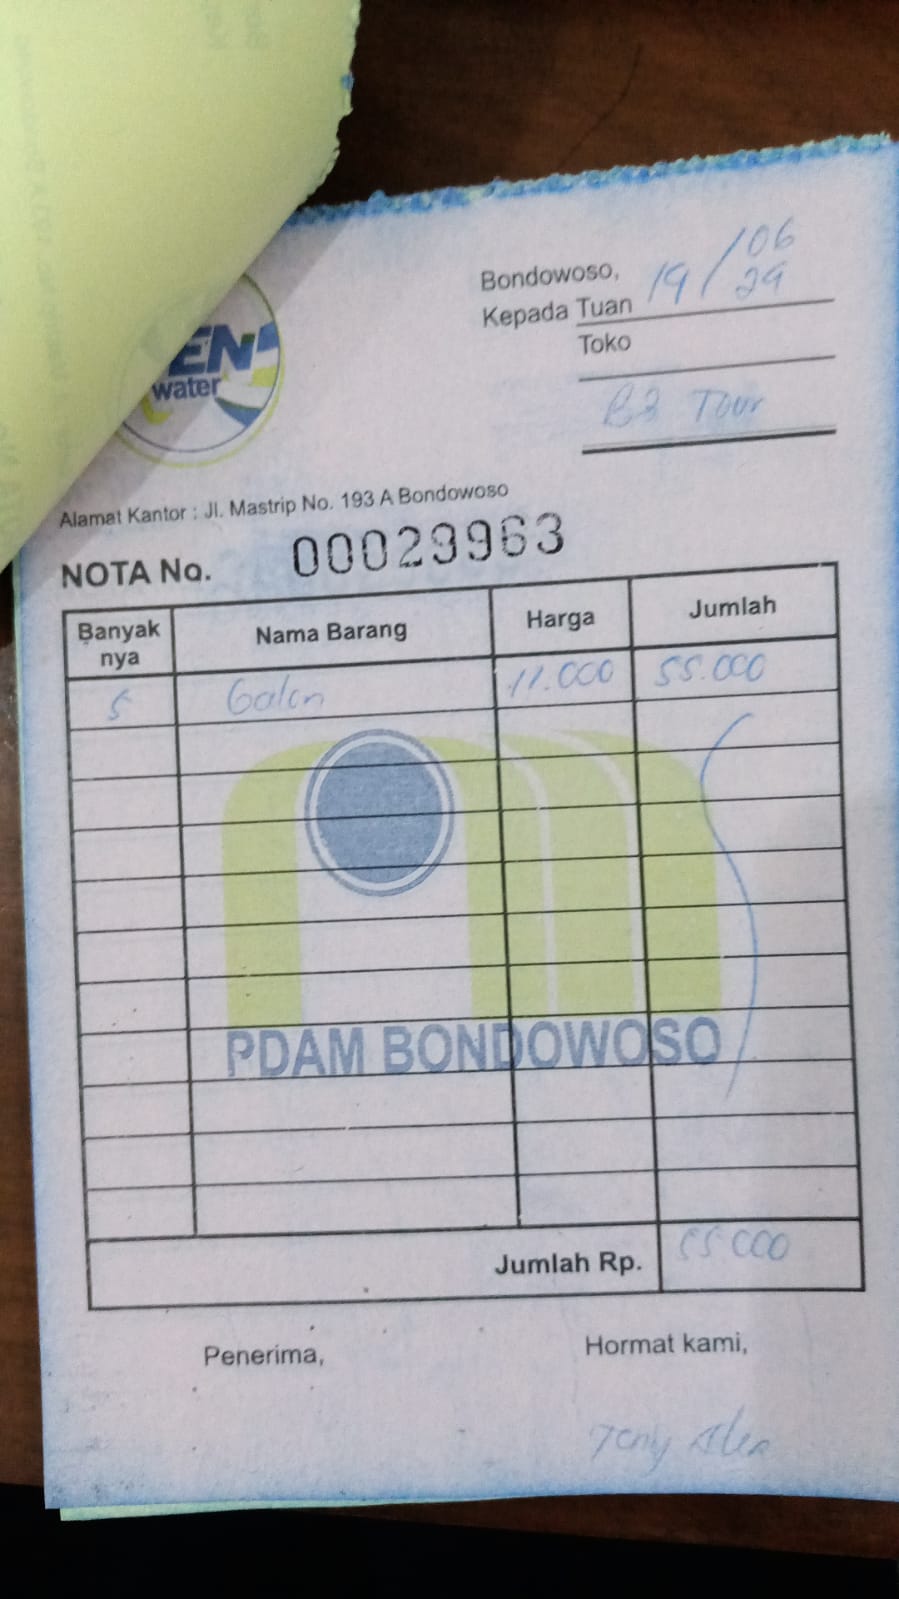 EN
water
Bondowoso, 19/06
Kepada Tuan 29
Toko
B3 Tour
Alamat Kantor : Jl. Mastrip No. 193 A Bondowoso
NOTA No. 00029963
Banyak nya Nama Barang Harga Jumlah
5 Galon 11.000 55.000
PDAM BONDOWOSO
Jumlah Rp. 55.000
Penerima, Hormat kami,